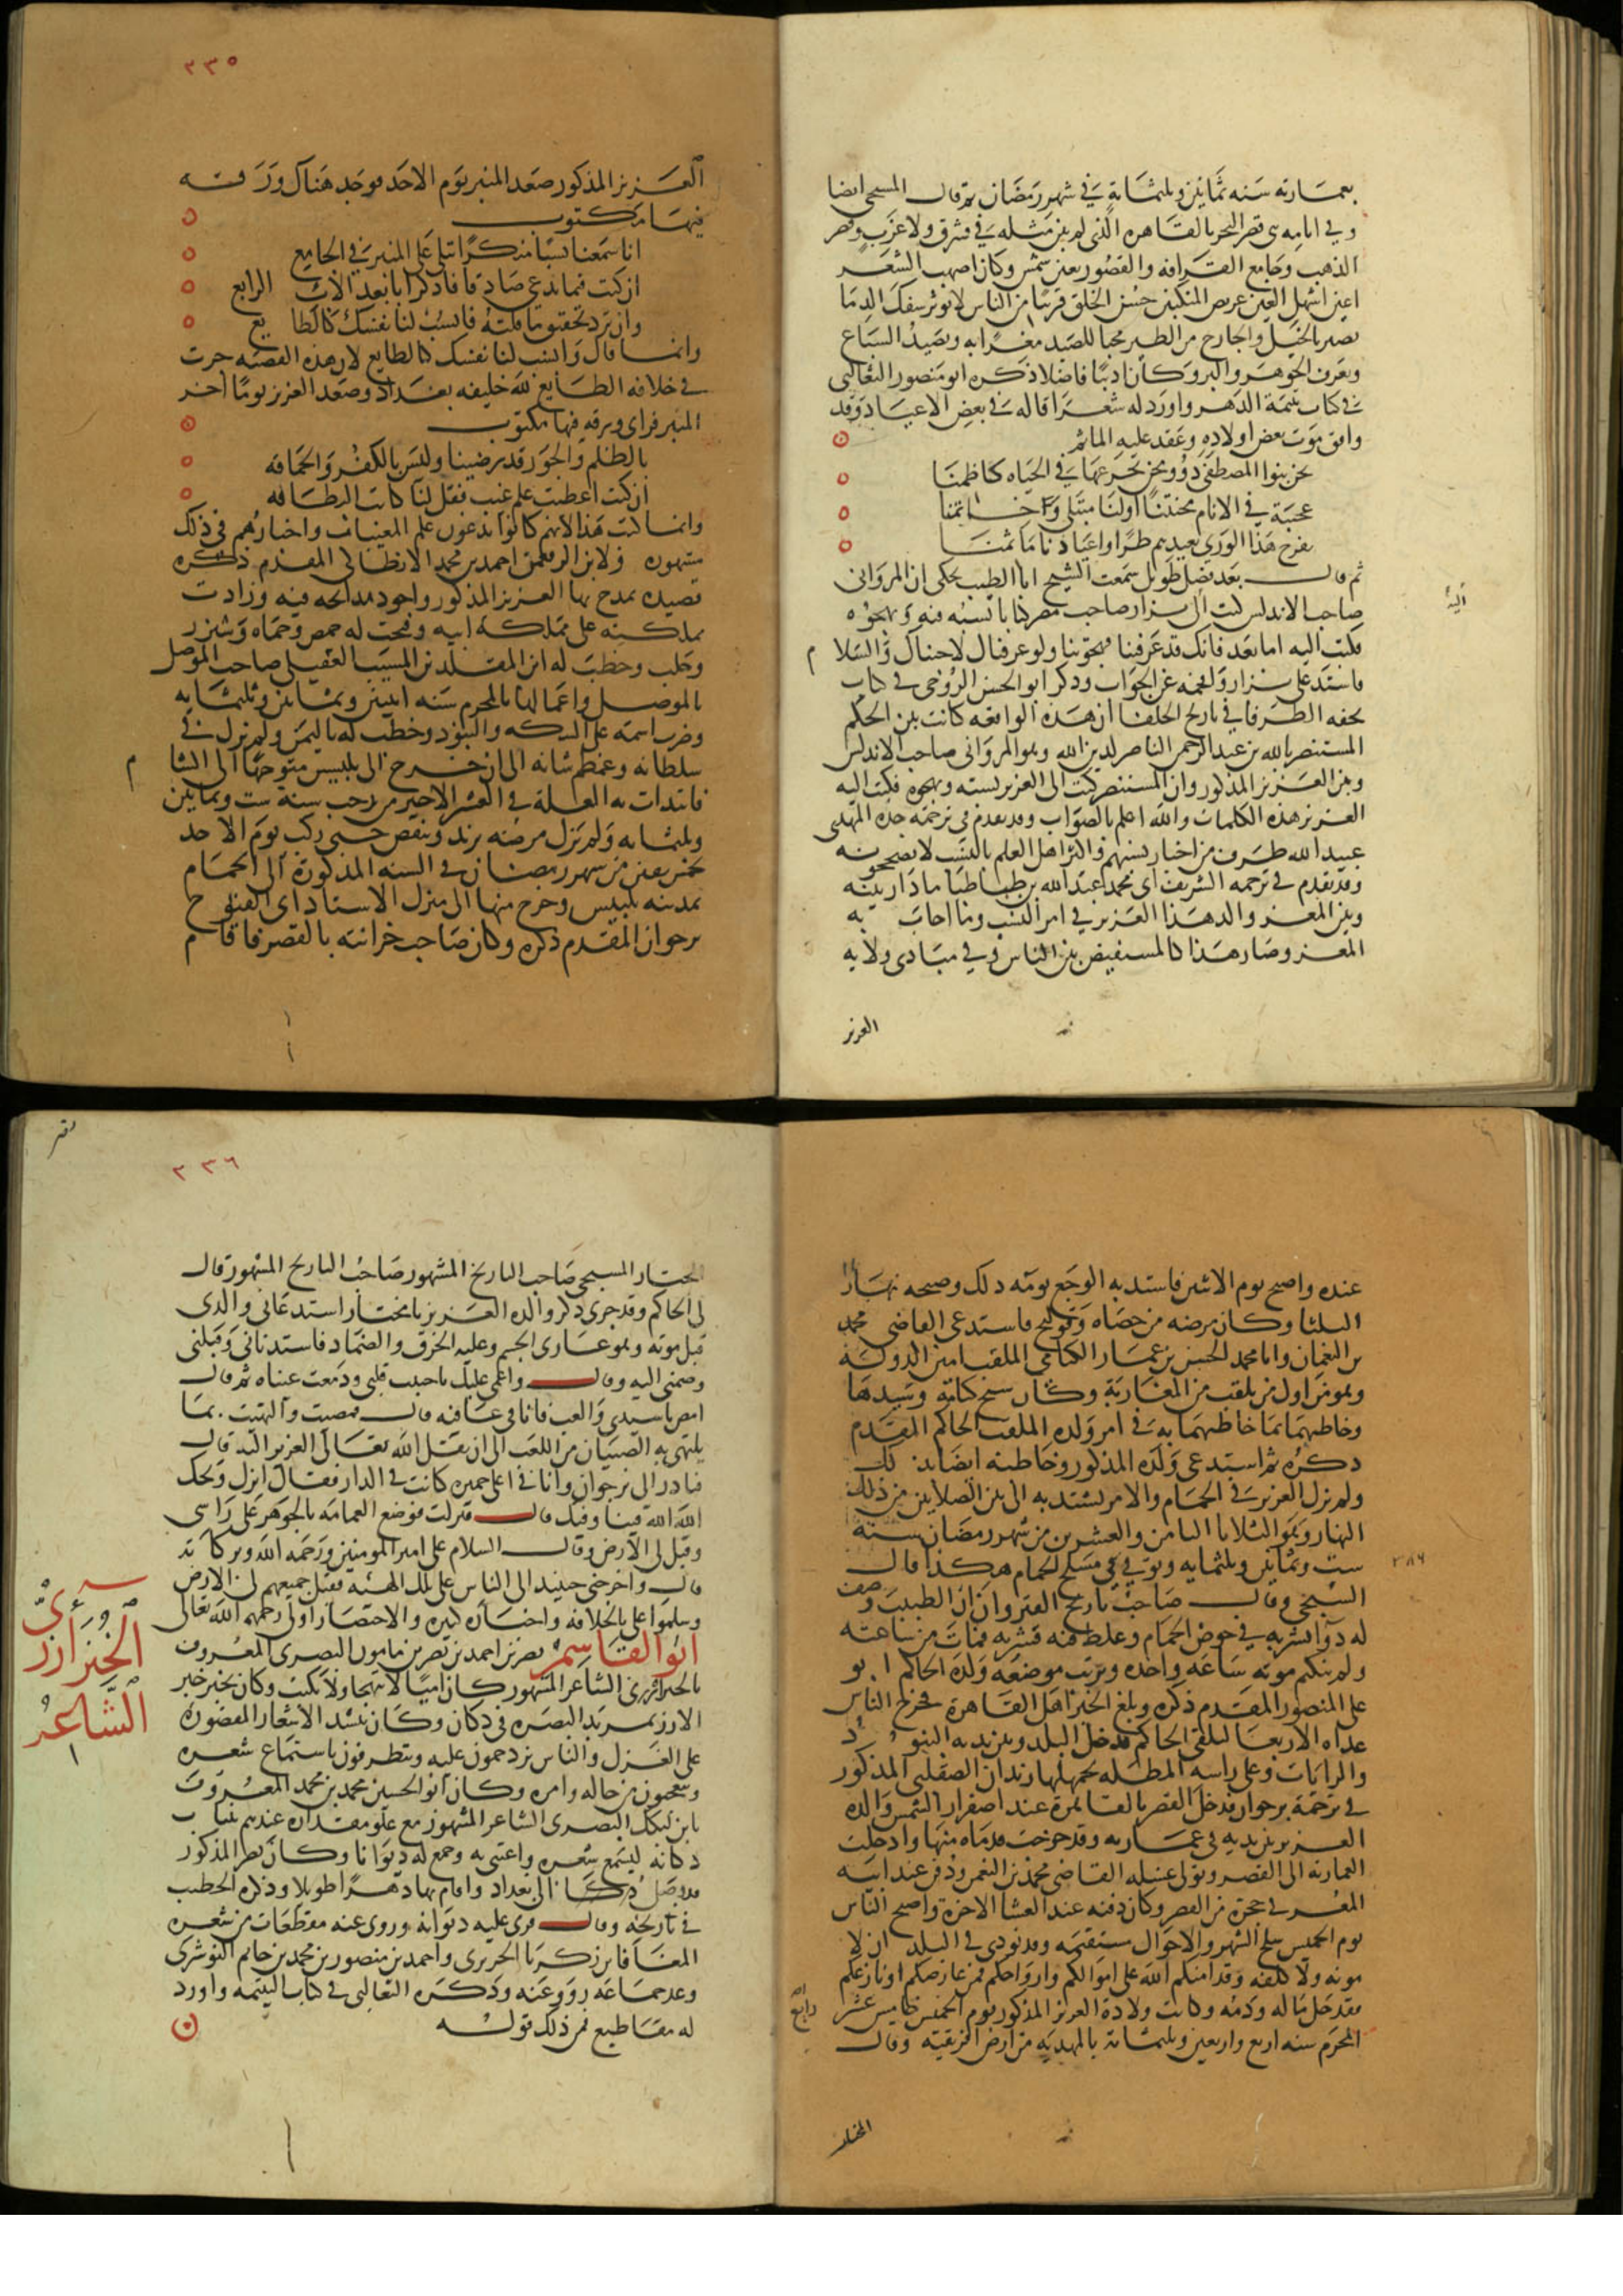 بعمارته سنه ثمانين وثلثماية في شهر رمضان ثم قال المسبحي ايضا
وفي ايامه بني قصر البحر بالقاهره الذي لم يبن مثله في شرق ولا غرب وقصر
الذهب وجامع القرافه والقصور بعين شمس وكان اصهب الشعر
اعين اشهل العين عريض المنكبين حسن الخلق قريبا من الناس لا يوثر سفك الدما
بصير بالخيل والجارح من الطير محبا للصيد مغرا به وبصيد السباع
ويعرف الجوهر والبز وكان اديبا فاضلا ذكره ابو منصور الثعالبي
في كتاب يتيمة الدهر واورد له شعرا قاله في بعض الاعياد وقد
وافق موت بعض اولاده وعقد عليه الماتم
نحن بنوا المصطفى ذوو محن يجرعها في الحياه كاظمنا
عجيبة في الانام محنتنا اولنا مبتلى واخرنا
يفرح هذا الورى بعيدهم طرا واعيادنا ماتمنا
ثم قال بعد فصل طويل سمعت الشيخ ابا الطيب يحكي ان المرواني
صاحب الاندلس كتب الى نزار صاحب مصر كتابا يسبه فيه ويهجوه
اليه
فكتب اليه اما بعد فانك قد عرفتنا فهجوتنا ولو عرفناك لاجبناك والسلام
فاشتد على نزار وافحمه عن الجواب وذكر ابو الحسن الروحي في كتاب
تحفه الظرفا في تاريخ الخلفا ان هذه الواقعه كانت بين الحكم
المستنصر بالله بن عبد الرحمن الناصر لدين الله وهو المرواني صاحب الاندلس
وبين العزيز المذكور وان المستنصر كتب الى العزيز يسبه ويهجوه فكتب اليه
العزيز هذه الكلمات والله اعلم بالصواب وقد تقدم في ترجمة جده المهدي
عبيد الله طرف من اخبار نسبهم واكثر اهل العلم بالنسب لا يصححونه
وقد تقدم في ترجمه الشريف ابي محمد عبد الله بن طباطبا ما دار بينه
وبين المعز والد هذا العزيز في امر النسب وما اجاب به
المعز وصار هذا كالمستفيض بين الناس وفي مبادي ولايه
العزيز
٢٣٥
العزيز المذكور صعد المنبر يوم الاحد فوجد هناك ورقه
فيها مكتوب
انا سمعنا نسبا منكرا يتلى على المنبر في الجامع
ان كنت فيما تدعي صادقا فاذكر ابا بعد الاب الرابع
وان ترد تحقيق ما قلته فانسب لنا نفسك كالطايع
وانما قال وانسب لنا نفسك كالطايع لان هذه القصه جرت
في خلافه الطايع لله خليفه بغداد وصعد العزيز يوما اخر
المنبر فراى ورقه فيها مكتوب
بالظلم والجور قد رضينا وليس بالكفر والحماقه
ان كنت اعطيت علم غيب فقل لنا كاتب البطاقه
وانما كتب هذا لانهم كانوا يدعون علم المغيبات واخبارهم في ذلك
مشهوره ولابن الرقعمق احمد بن محمد الانطاكي المقدم ذكره
قصيده يمدح بها العزيز المذكور واجود مدائحه فيه وزادت
مملكته على مملكة ابيه وفتحت له حمص وحماه وشيزر
وحلب وخطب له ابن المقلد بن المسيب العقيلي صاحب الموصل
بالموصل واعمالها بالمحرم سنه اثنين وثمانين وثلثمايه
وضرب اسمه على السكه والبنود وخطب له باليمن ولم يزل في
سلطانه وعظم شانه الى ان خرج الى بلبيس متوجها الى الشام
فابتدات به العله في العشر الاخير من رجب سنه ست وثمانين
وثلثمايه ولم يزل مرضه يزيد وينقص حتى ركب يوم الاحد
لخمس بقين من شهر رمضان في السنه المذكورة الى الحمام
بمدينه بلبيس وخرج منها الى منزل الاستاذ ابي الفتوح
برجوان المقدم ذكره وكان صاحب خزانته بالقصر فاقام
عنده واصبح يوم الاثنين فاشتد به الوجع يومه ذلك وصبحه نهار
الثلثا وكان مرضه من حصاه وقولنج فاستدعى القاضي محمد
بن النعمان وابا محمد الحسن بن عمار الكتامي الملقب امين الدولة
وهو من اول من تلقب من المغاربة وكان شيخ كتامة وسيدها
وخاطبهما بما خاطبهما به في امر ولده الملقب الحاكم المقدم
ذكره ثم استدعى ولده المذكور وخاطبه ايضا بذلك
ولم يزل العزيز في الحمام والامر يشتد به الى بين الصلاتين من ذلك
النهار وهو الثلاثا الثامن والعشرين من شهر رمضان سنة
ست وثمانين وثلثمايه وتوفي في مسلخ الحمام هكذا قال
٣٨٦
المسبحي وقال صاحب تاريخ القيروان ان الطبيب وصف
له دوا يشربه في حوض الحمام وغلط فيه فشربه فمات من ساعته
ولم ينكتم موته ساعه واحده وترتب موضعه ولده الحاكم ابو
علي المنصور المقدم ذكره وبلغ الخبر اهل القاهرة فخرج الناس
غداه الاربعا لتلقي الحاكم فدخل البلد وبين يديه البنود
والرايات وعلى راسه المظله يحملها ريدان الصقلبي المذكور
في ترجمة برجوان فدخل القصر بالقاهرة عند اصفرار الشمس ووالده
العزيز بين يديه في عماريه وقد خرجت قدماه منها وادخلت
العماريه الى القصر وتولى غسله القاضي محمد بن النعمن ودفن عند ابيه
المعز في حجرة من القصر وكان دفنه عند العشا الاخرة واصبح الناس
يوم الخميس سلخ الشهر والاحوال مستقيمه وقد نودي في البلد ان لا
مونه ولا كلفه وقد امنكم الله على اموالكم وارواحكم فمن عارضكم او نازعكم
فقد حل ماله ودمه وكانت ولادة العزيز المذكور يوم الخميس خامس عشر
رابع
المحرم سنه اربع واربعين وثلثمائه بالمهديه من ارض افريقيه وقال
المختار
٢٣٦
المختار المسبحي صاحب التاريخ المشهور صاحب التاريخ المشهور قال
لي الحاكم وقد جرى ذكر والده العزيز يا مختار استدعاني والدي
قبل موته وهو عاري الجسم وعليه الخرق والضماد فاستدناني وقبلني
وضمني اليه وقال واغمي عليك يا حبيب قلبي ودمعت عيناه ثم قال
امض يا سيدي والعب فانا في عافيه قال فمضيت والتهيت بما
يلتهي به الصبيان من اللعب الى ان نقل الله تعالى العزيز اليه قال
فبادر الي برجوان وانا في اعلى جميزه كانت في الدار فقال انزل ويحك
الله الله فينا وفيك قال فنزلت فوضع العمامه بالجوهر على راسي
وقبل لي الارض وقال السلام على امير المومنين ورحمه الله وبركاته
قال واخرجني حينيذ الى الناس على تلك الهيئه فقبل جميعهم لي الارض
وسلموا علي بالخلافه واخباره كثيره والاختصار اولى رحمهم الله تعالى
الخبزارزي
الشاعر
ابو القاسم نصر بن احمد بن نصر بن مامون البصري المعروف
بالخبزارزي الشاعر المشهور كان اميا لا يتهجا ولا يكتب وكان يخبز خبز
الارز بمربد البصره في دكان وكان ينشد الاشعار المقصورة
على الغزل والناس يزدحمون عليه ويتطرفون باستماع شعره
ويتعجبون من حاله وامره وكان ابو الحسين محمد بن محمد المعروف
بابن لنكك البصري الشاعر المشهور مع علو مقداره عندهم ينتاب
دكانه ليسمع شعره واعتنى به وجمع له ديوانا وكان نصر المذكور
قد وصل الى بغداد واقام بها دهرا طويلا وذكره الخطيب
في تاريخه وقال قري عليه ديوانه وروى عنه مقطعات من شعره
المعافا بن زكريا الجريري واحمد بن منصور بن محمد بن حاتم النوشري
وعد جماعه رووا عنه وذكره الثعالبي في كتاب اليتيمه واورد
له مقاطيع فمن ذلك قوله